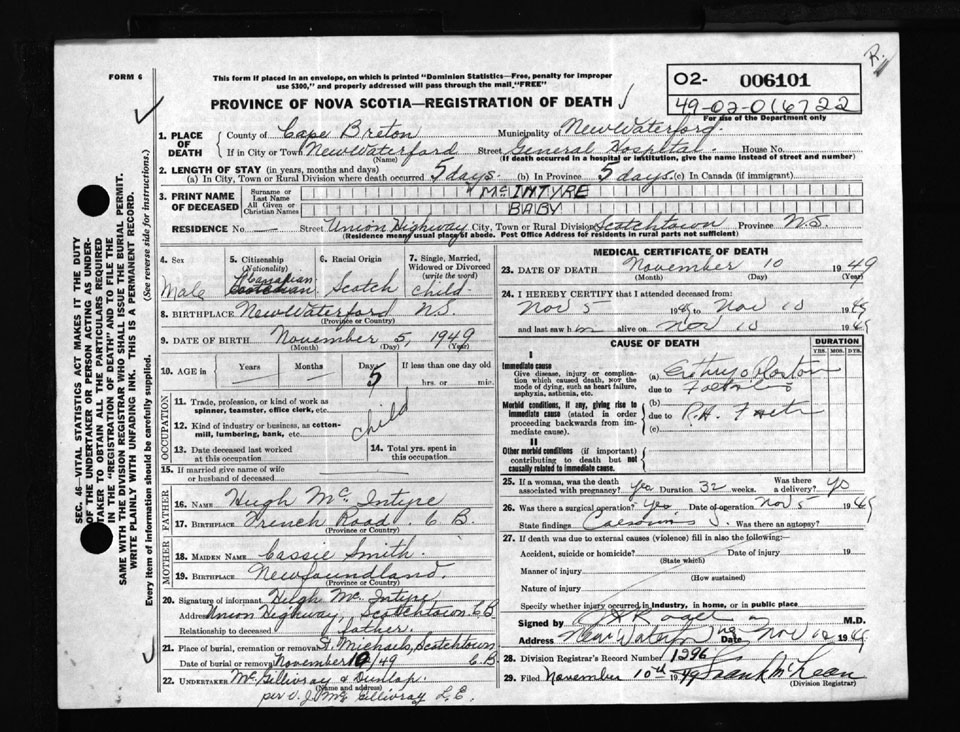 R.
FORM 6
This form if placed in an envelope, on which is printed "Dominion Statistics—Free, penalty for improper
use $300," and properly addressed will pass through the mail, "FREE"
O2- 006101
49-02-016722
For use of the Department only
PROVINCE OF NOVA SCOTIA—REGISTRATION OF DEATH
SEC. 46—VITAL STATISTICS ACT MAKES IT THE DUTY
OF THE UNDERTAKER OR PERSON ACTING AS UNDER-
TAKER TO OBTAIN ALL THE PARTICULARS REQUIRED
IN THE "REGISTRATION OF DEATH" AND TO FILE THE
SAME WITH THE DIVISION REGISTRAR WHO SHALL ISSUE THE BURIAL PERMIT.
WRITE PLAINLY WITH UNFADING INK. THIS IS A PERMANENT RECORD.
Every item of information should be carefully supplied. (See reverse side for instructions.)
1. PLACE OF DEATH
County of Cape Breton Municipality of New Waterford.
If in City or Town New Waterford Street General Hospital. House No.
(Name) (If death occurred in a hospital or institution, give the name instead of street and number)
2. LENGTH OF STAY (in years, months and days)
(a) In City, Town or Rural Division where death occurred 5 days. (b) In Province 5 days. (c) In Canada (if immigrant)
3. PRINT NAME OF DECEASED
Surname or Last Name McINTYRE
All Given or Christian Names BABY
RESIDENCE No. — Street Union Highway City, Town or Rural Division Scotchtown Province N.S.
(Residence means usual place of abode. Post Office Address for residents in rural parts not sufficient)
4. Sex
Male
5. Citizenship (Nationality)
Canadian
6. Racial Origin
Scotch
7. Single, Married, Widowed or Divorced (write the word)
child
8. BIRTHPLACE New Waterford N.S.
(Province or Country)
9. DATE OF BIRTH November 5, 1949
(Month) (Day) (Year)
10. AGE in Years Months Days 5 If less than one day old
hrs. or min.
OCCUPATION
11. Trade, profession, or kind of work as
spinner, teamster, office clerk, etc.
12. Kind of industry or business, as cotton-
mill, lumbering, bank, etc.
child
13. Date deceased last worked
at this occupation
14. Total yrs. spent in
this occupation
15. If married give name of wife
or husband of deceased
FATHER
16. NAME Hugh Mc Intyre
17. BIRTHPLACE French Road. C B.
(Province or Country)
MOTHER
18. MAIDEN NAME Cassie Smith.
19. BIRTHPLACE Newfoundland.
(Province or Country)
20. Signature of informant Hugh Mc Intyre
Address Union Highway, Scotchtown. C B
Relationship to deceased father.
21. Place of burial, cremation or removal St. Michaels, Scotchtown
Date of burial or removal November 10/49 C.B.
22. UNDERTAKER McGillivray & Dunlap.
(Name and address)
per J. McGillivray L.E.
MEDICAL CERTIFICATE OF DEATH
23. DATE OF DEATH November 10 1949
(Month) (Day) (Year)
24. I HEREBY CERTIFY that I attended deceased from:
Nov 5 1949 to Nov 10 1949
and last saw him alive on Nov 10 1949
CAUSE OF DEATH
DURATION
YRS. MOS. DYS.
I
Immediate cause
Give disease, injury or complica-
tion which caused death, NOT the
mode of dying, such as heart failure,
asphyxia, asthenia, etc.
(a)
due to
Morbid conditions, if any, giving rise to
immediate cause (stated in order
proceeding backwards from im-
mediate cause).
(b)
due to R.H.
(c)
II
Other morbid conditions (if important)
contributing to death but not
causally related to immediate cause.
25. If a woman, was the death
associated with pregnancy? Yes Duration 32 weeks. Was there a delivery? Yes
26. Was there a surgical operation? Yes. Date of operation Nov 5 1949
State findings Was there an autopsy?
27. If death was due to external causes (violence) fill in also the following:—
Accident, suicide or homicide? Date of injury 19
(State which)
Manner of injury
(How sustained)
Nature of injury
Specify whether injury occurred in industry, in home, or in public place
Signed by M.D.
Address New Waterford Date Nov 10 1949
28. Division Registrar's Record Number 1296
29. Filed November 10th 1949 Frank McLean
(Division Registrar)